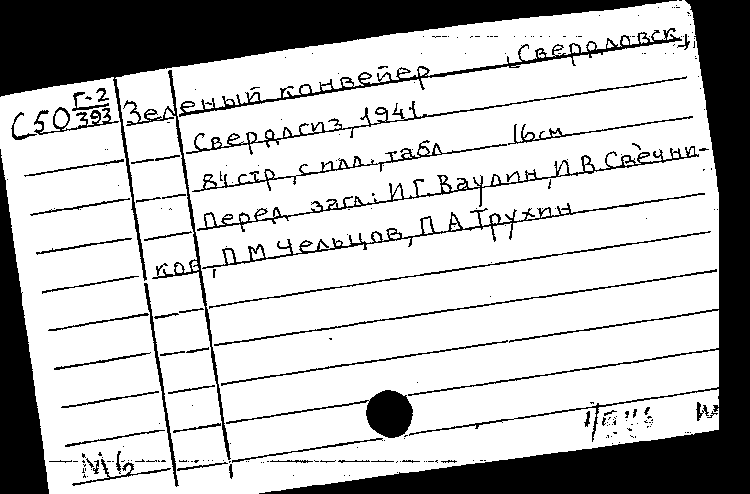 С50 Г-2 393 Зеленый конвейер [Свердловск,]
Свердлгиз, 1941.
84 стр, с илл., табл 16 см
перед загл: И.Г. Ваулин, И.В. Свечни-
ков, П М Чельцов, П А Трухин
М6